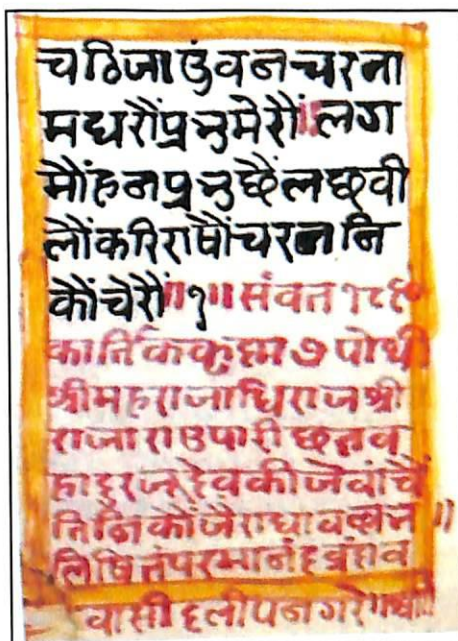 चढिजाउंवनचरना
मघरौंप्रभुमेरौं॥लग
मौंहनप्रभुछैंलछवी
लौंकरिराषौंचरननि
कौंचेरौं॥१॥संवत
कार्तिककृष्ण७पोथी
श्रीमहराजाधिराजश्री
राजाराउपारीछतव
हादुरजूदेवकीजेवांचैं
तिनिकौंजैराधावल्लभ॥
लिषितंपरमानंद
वासीदलीपनगरे